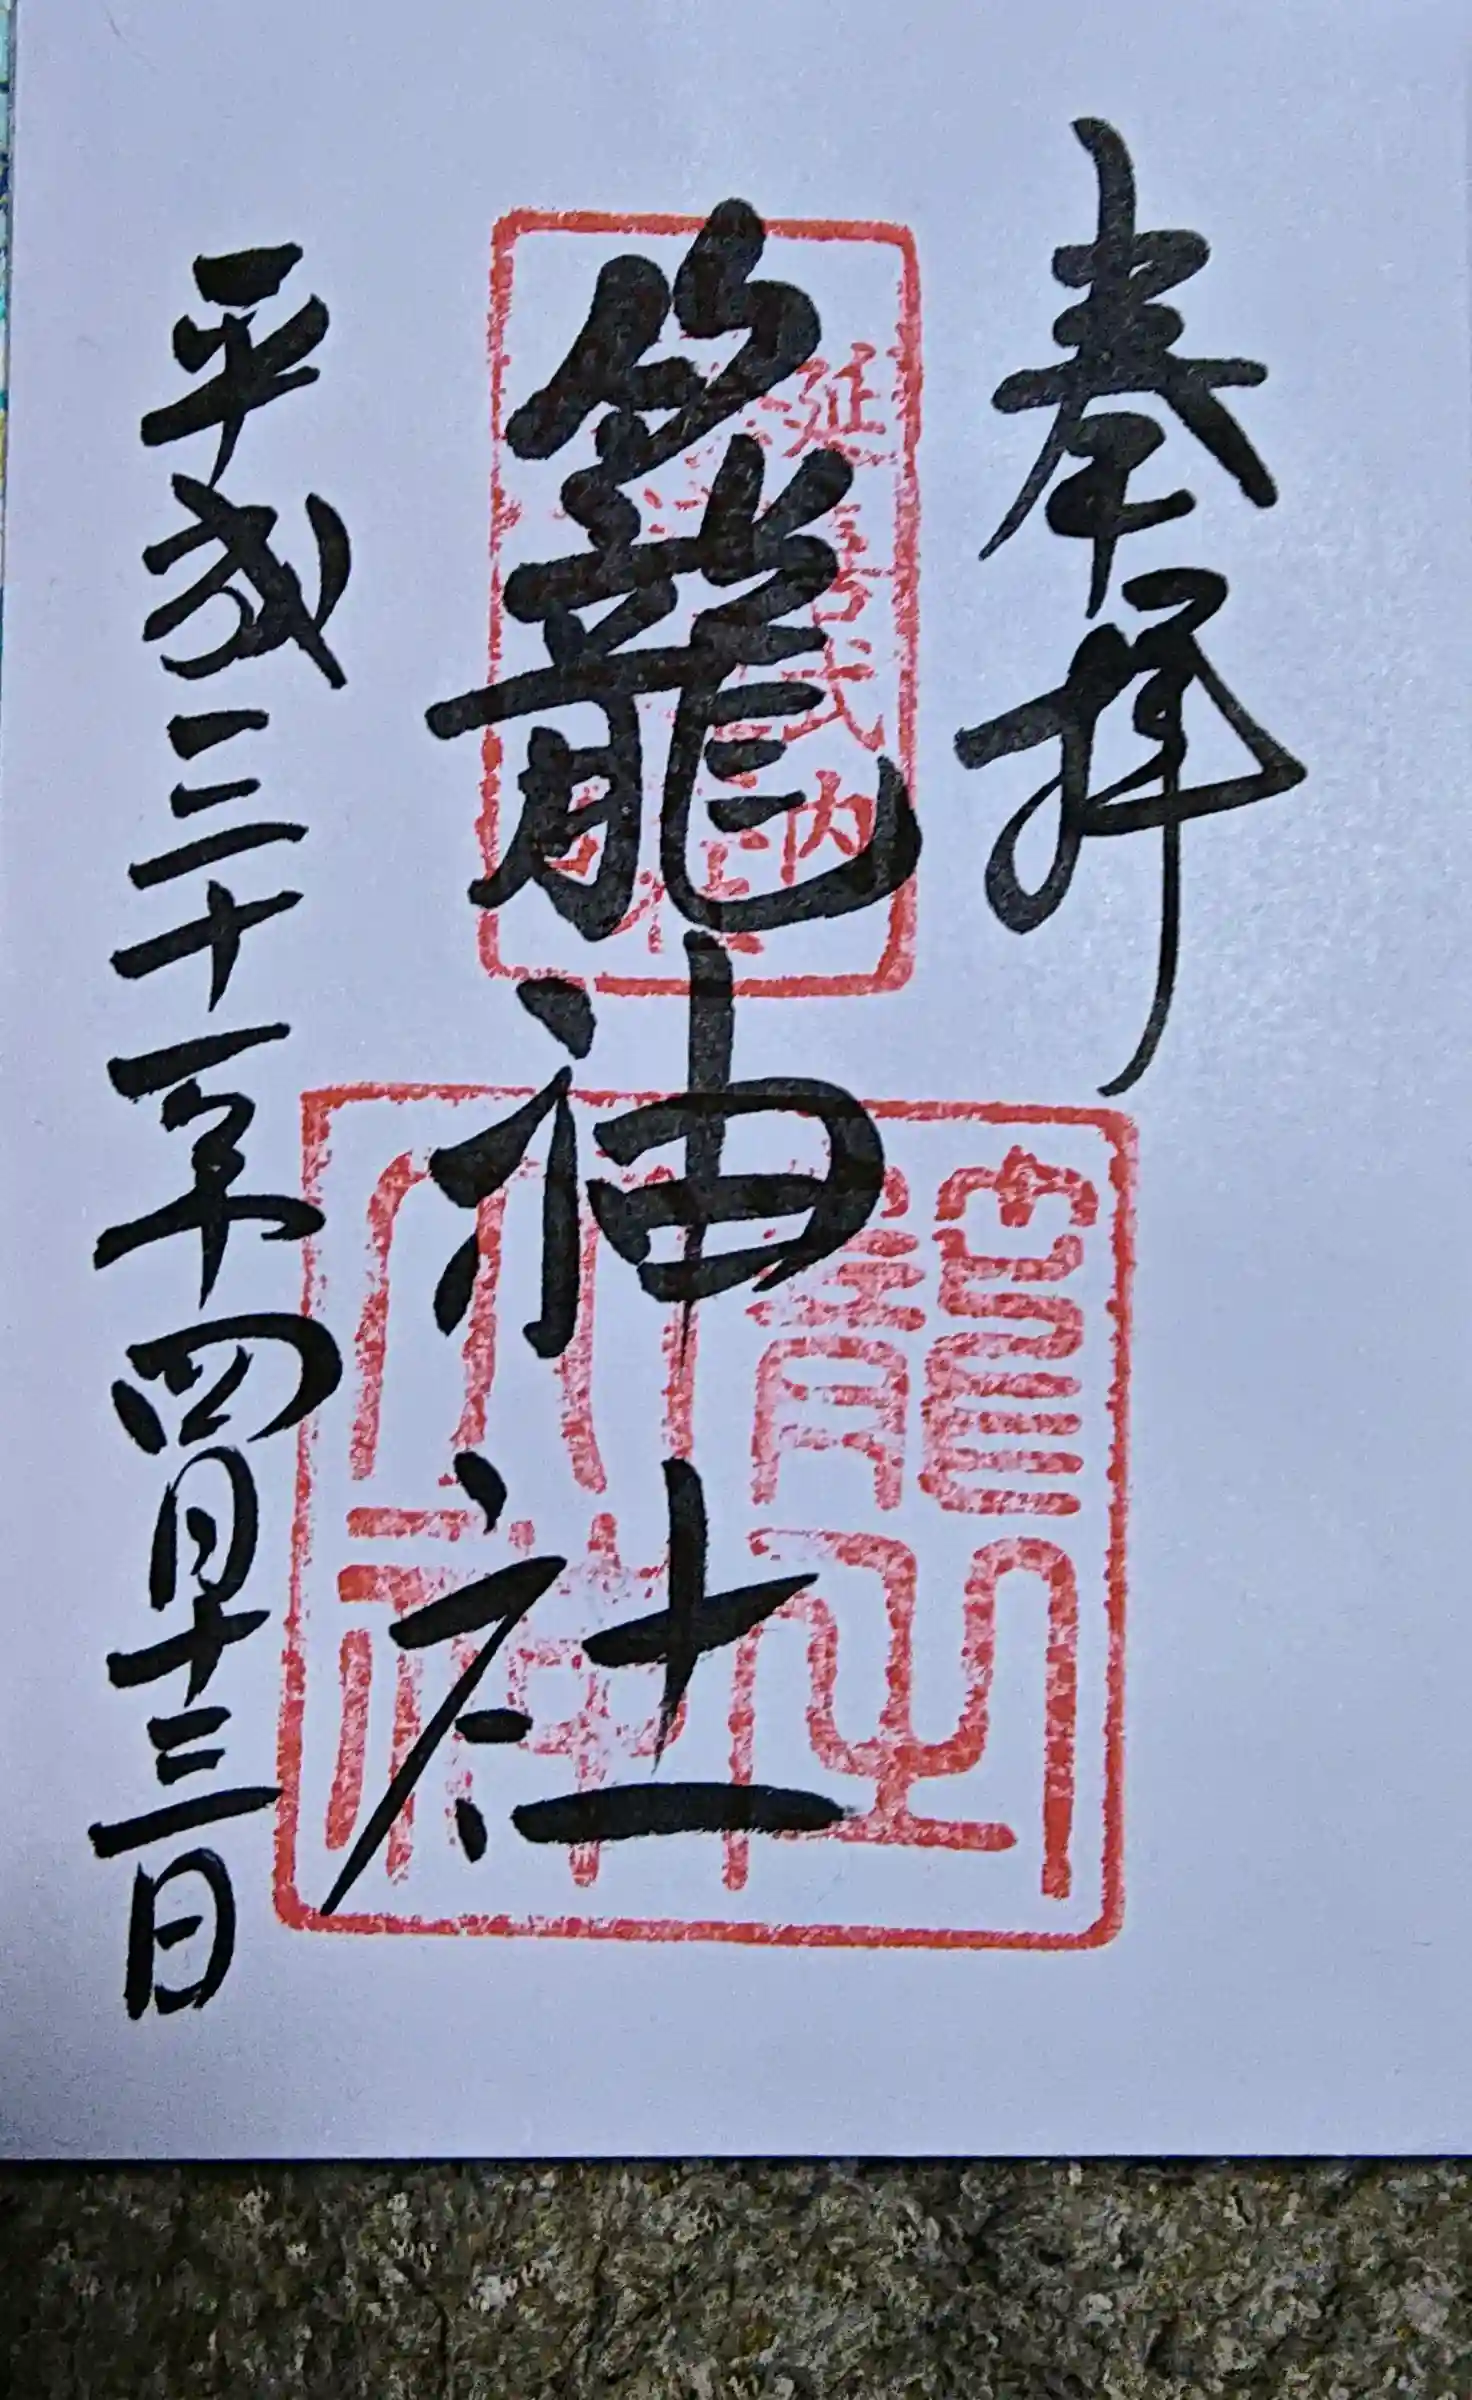 奉拝
籠神社
平成三十一年四月十三日
延喜式内
籠之大神